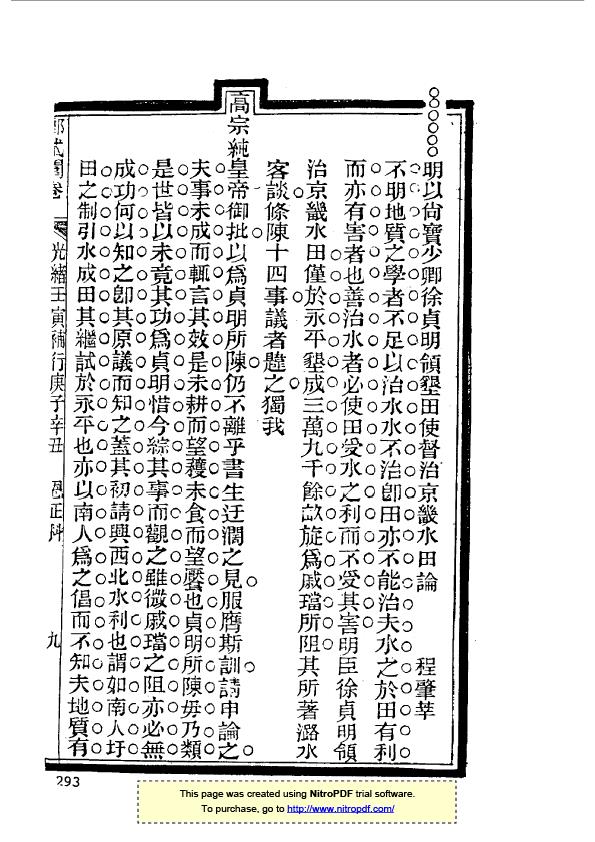 明以尙寶少卿徐貞明領墾田使督治京畿水田論 程肇莘
不明地質之學者不足以治水水不治卽田亦不能治夫水之於田有利
而亦有害者也善治水者必使田受水之利而不受其害明臣徐貞明領
治京畿水田僅於永平墾成三萬九千餘畝旋爲戚璫所阻其所著潞水
客談條陳十四事議者韙之獨我
高宗純皇帝御批以爲貞明所陳仍不離乎書生迂濶之見服膺斯訓請申論之
夫事未成而輒言其效是未耕而望穫未食而望饜也貞明所陳毋乃類
是世皆以未竟其功爲貞明惜今綜其事而觀之雖微戚璫之阻亦必無
成功何以知之卽其原議而知之蓋其初請興西北水利也謂如南人圩
田之制引水成田其繼試於永平也亦以南人爲之倡而不知夫地質有
闈卷 光緖壬寅補行庚子辛丑 恩正科 九
293
This page was created using NitroPDF trial software.
To purchase, go to http://www.nitropdf.com/